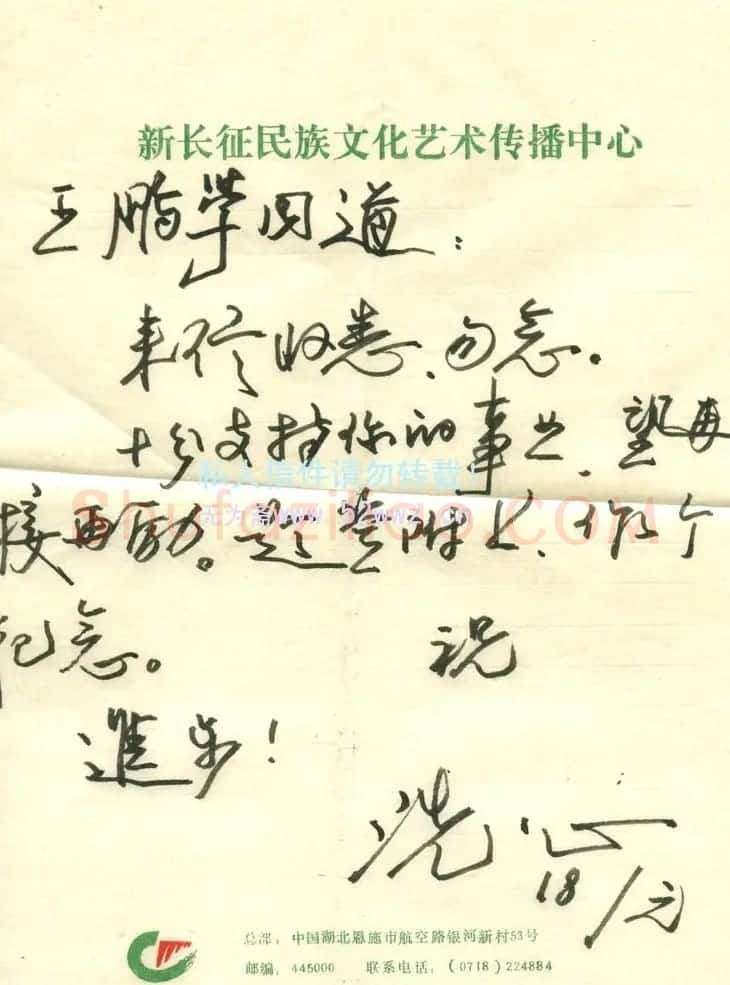 新长征民族文化艺术传播中心
王鹏举同道：
来信收悉、勿念。
十分支持你的事业、望再
接再励。题签附上、作个
纪念。
祝
進步！
洗心
18/元
私人信件请勿转载！
Shufazidao.COM
无为斋www.52wwz.cn
总部：中国湖北恩施市航空路银河新村53号
邮编：445000 联系电话：(0718) 224884